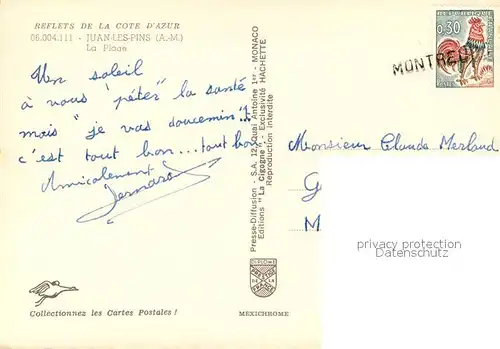 REFLETS DE LA COTE D'AZUR
06.004.111 - JUAN-LES-PINS (A.-M.)
La Plage
Un soleil
à vous "péter" la santé
mais "je vas doucemin"!
c'est tout bon...tout bon
Amicalement
Bernard
Presse-Diffusion - S.A. 12, Quai Antoine 1er - MONACO
Editions "La Cigogne" - Exclusivité HACHETTE
Reproduction interdite
0,30
MONTREUI
Monsieur Claude Merland
G
M
privacy protection
Datenschutz
DIPLOME
Collectionnez les Cartes Postales !
MEXICHROME